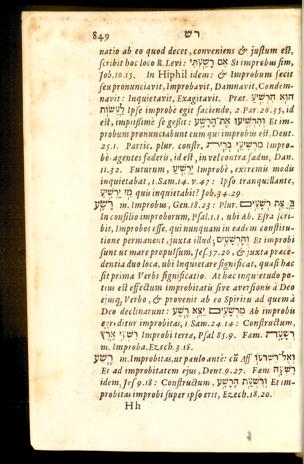 849 רש
natio ab eo quod decet, conveniens & justum est,
scribit hoc loco R. Levi: אִם רָשַׁעְתִּי Si improbus sim,
Job.10.15. In Hiphil idem: & Improbum fecit
seu pronunciavit, Improbavit, Damnavit, Condem-
navit: Inquietavit, Exagitavit. Præt.
הוּא הִרְשִׁיעַ לַעֲשׂוֹת Ipse improbè egit faciendo, 2.Par.20.35, id
est, impiissimè se gessit: וְהִרְשִׁיעוּ אֶת־הָרָשָׁע Et im-
probum pronunciabunt eum qui improbus est. Deut.
25.1. Partic. plur. constr. מַרְשִׁיעֵי בְרִית Impro-
bè agentes fœderis, id est, in vel contra fœdus, Dan.
11.32. Futurum, יַרְשִׁיעַ Improbè, extremi modu
inquietabat, 1.Sam.14.v.47: Ipso tranquillante,
מִי יַרְשִׁיעַ quis inquietabit? Job.34.29.
רָשָׁע m. Improbus, Gen.18.23: Plur. בַּעֲצַת רְשָׁעִים
In consilio improborum, Psal.1.1, ubi Ab. Esra scri-
bit, Improbos esse, qui nunquam in eadem constitu-
tione permanent, juxta illud: וְהָרְשָׁעִים Et improbi
sunt ut mare propulsum, Jes.57.20, & juxta præce-
dentia duo loca, ubi Inquietare significat, quasi hæc
sit prima Verbi significatio. At hæc inquietudo po-
tius est effectum improbitatis sive aversionis à Deo
ejusq; Verbo, & provenit ab eo Spiritu ad quem à
Deo declinarunt: מֵרְשָׁעִים יֵצֵא רֶשַׁע Ab improbis
egreditur improbitas, 1 Sam.24.14: Constructum,
רִשְׁעֵי אָרֶץ Improbi terræ, Psal 85.9. Fæm. רִשְׁעָה
m. Improba, Ezech.3.18.
רֶשַׁע m. Improbitas, ut paulo antè: cū Aff. וְאֶל־רִשְׁעוֹ
Et ad improbitatem ejus, Deut.9.27. Fæm. רִשְׁעָה
idem, Jes 9.18: Constructum, וְרִשְׁעַת הָרָשָׁע Et im-
probitas improbi super ipso erit, Ezech.18.20.
Hh